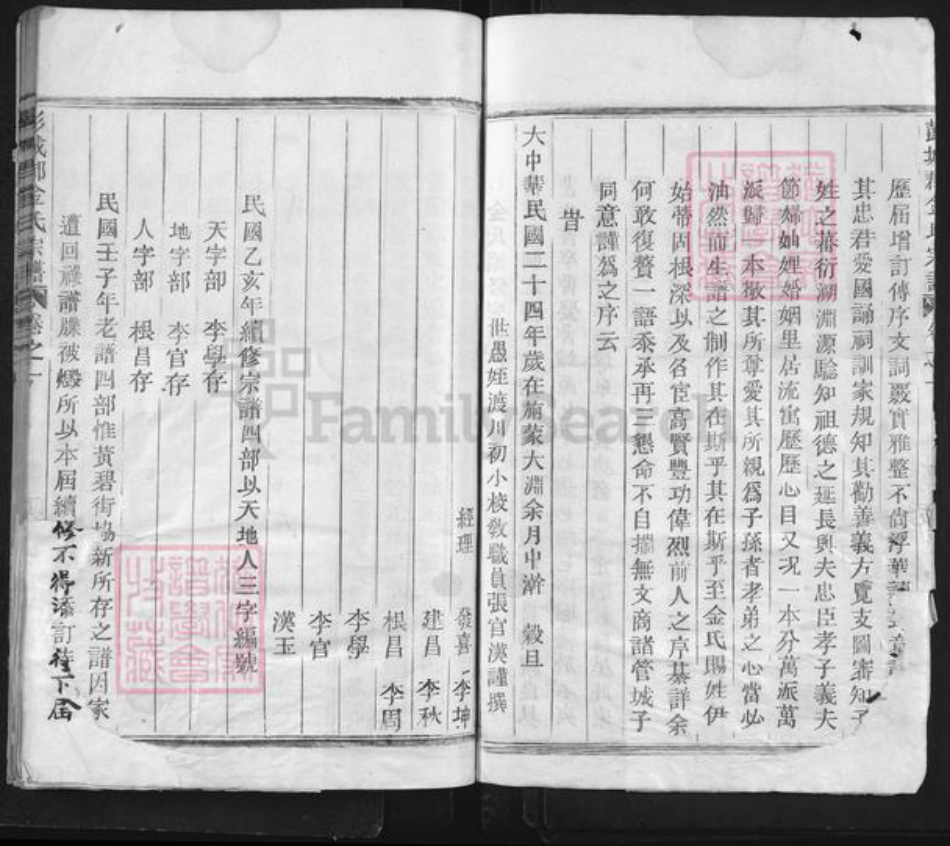 歷屆增訂傳序文詞覈實雅整不尙浮華
其忠君愛國誦祠訓家規知其勸善義方覽支圖審知
姓之蕃衍溯淵源驗知祖德之延長與夫忠臣孝子義夫
節婦妯娌婚姻里居流寓歷歷心目又况一本分萬派萬
派歸一本敬其所尊愛其所親爲子孫者孝弟之心當必
油然而生譜之制作其在斯乎其在斯乎至金氏賜姓伊
始蒂固根深以及各宦高賢豐功偉烈前人之序綦詳余
何敢復贅一語忝承再三懇命不自揣無文商諸管城子
同意謹爲之序云
旹
大中華民國二十四年歲在旃蒙大淵余月中澣 穀旦
世愚姪渡川初小校敎職員張官漢謹撰
經理 發喜 李坤
建昌 李秋
根昌 李周
李學
李官
漢玉
民國乙亥年續修宗譜四部以天地人三字編號
天字部 李學存
地字部 李官存
人字部 根昌存
民國壬子年老譜四部惟黃碧街協新所存之譜因家
遭回祿譜牒被燬所以本屆續修不得添訂待下屆
彭城郡金氏宗譜 卷之一
FamilySearch